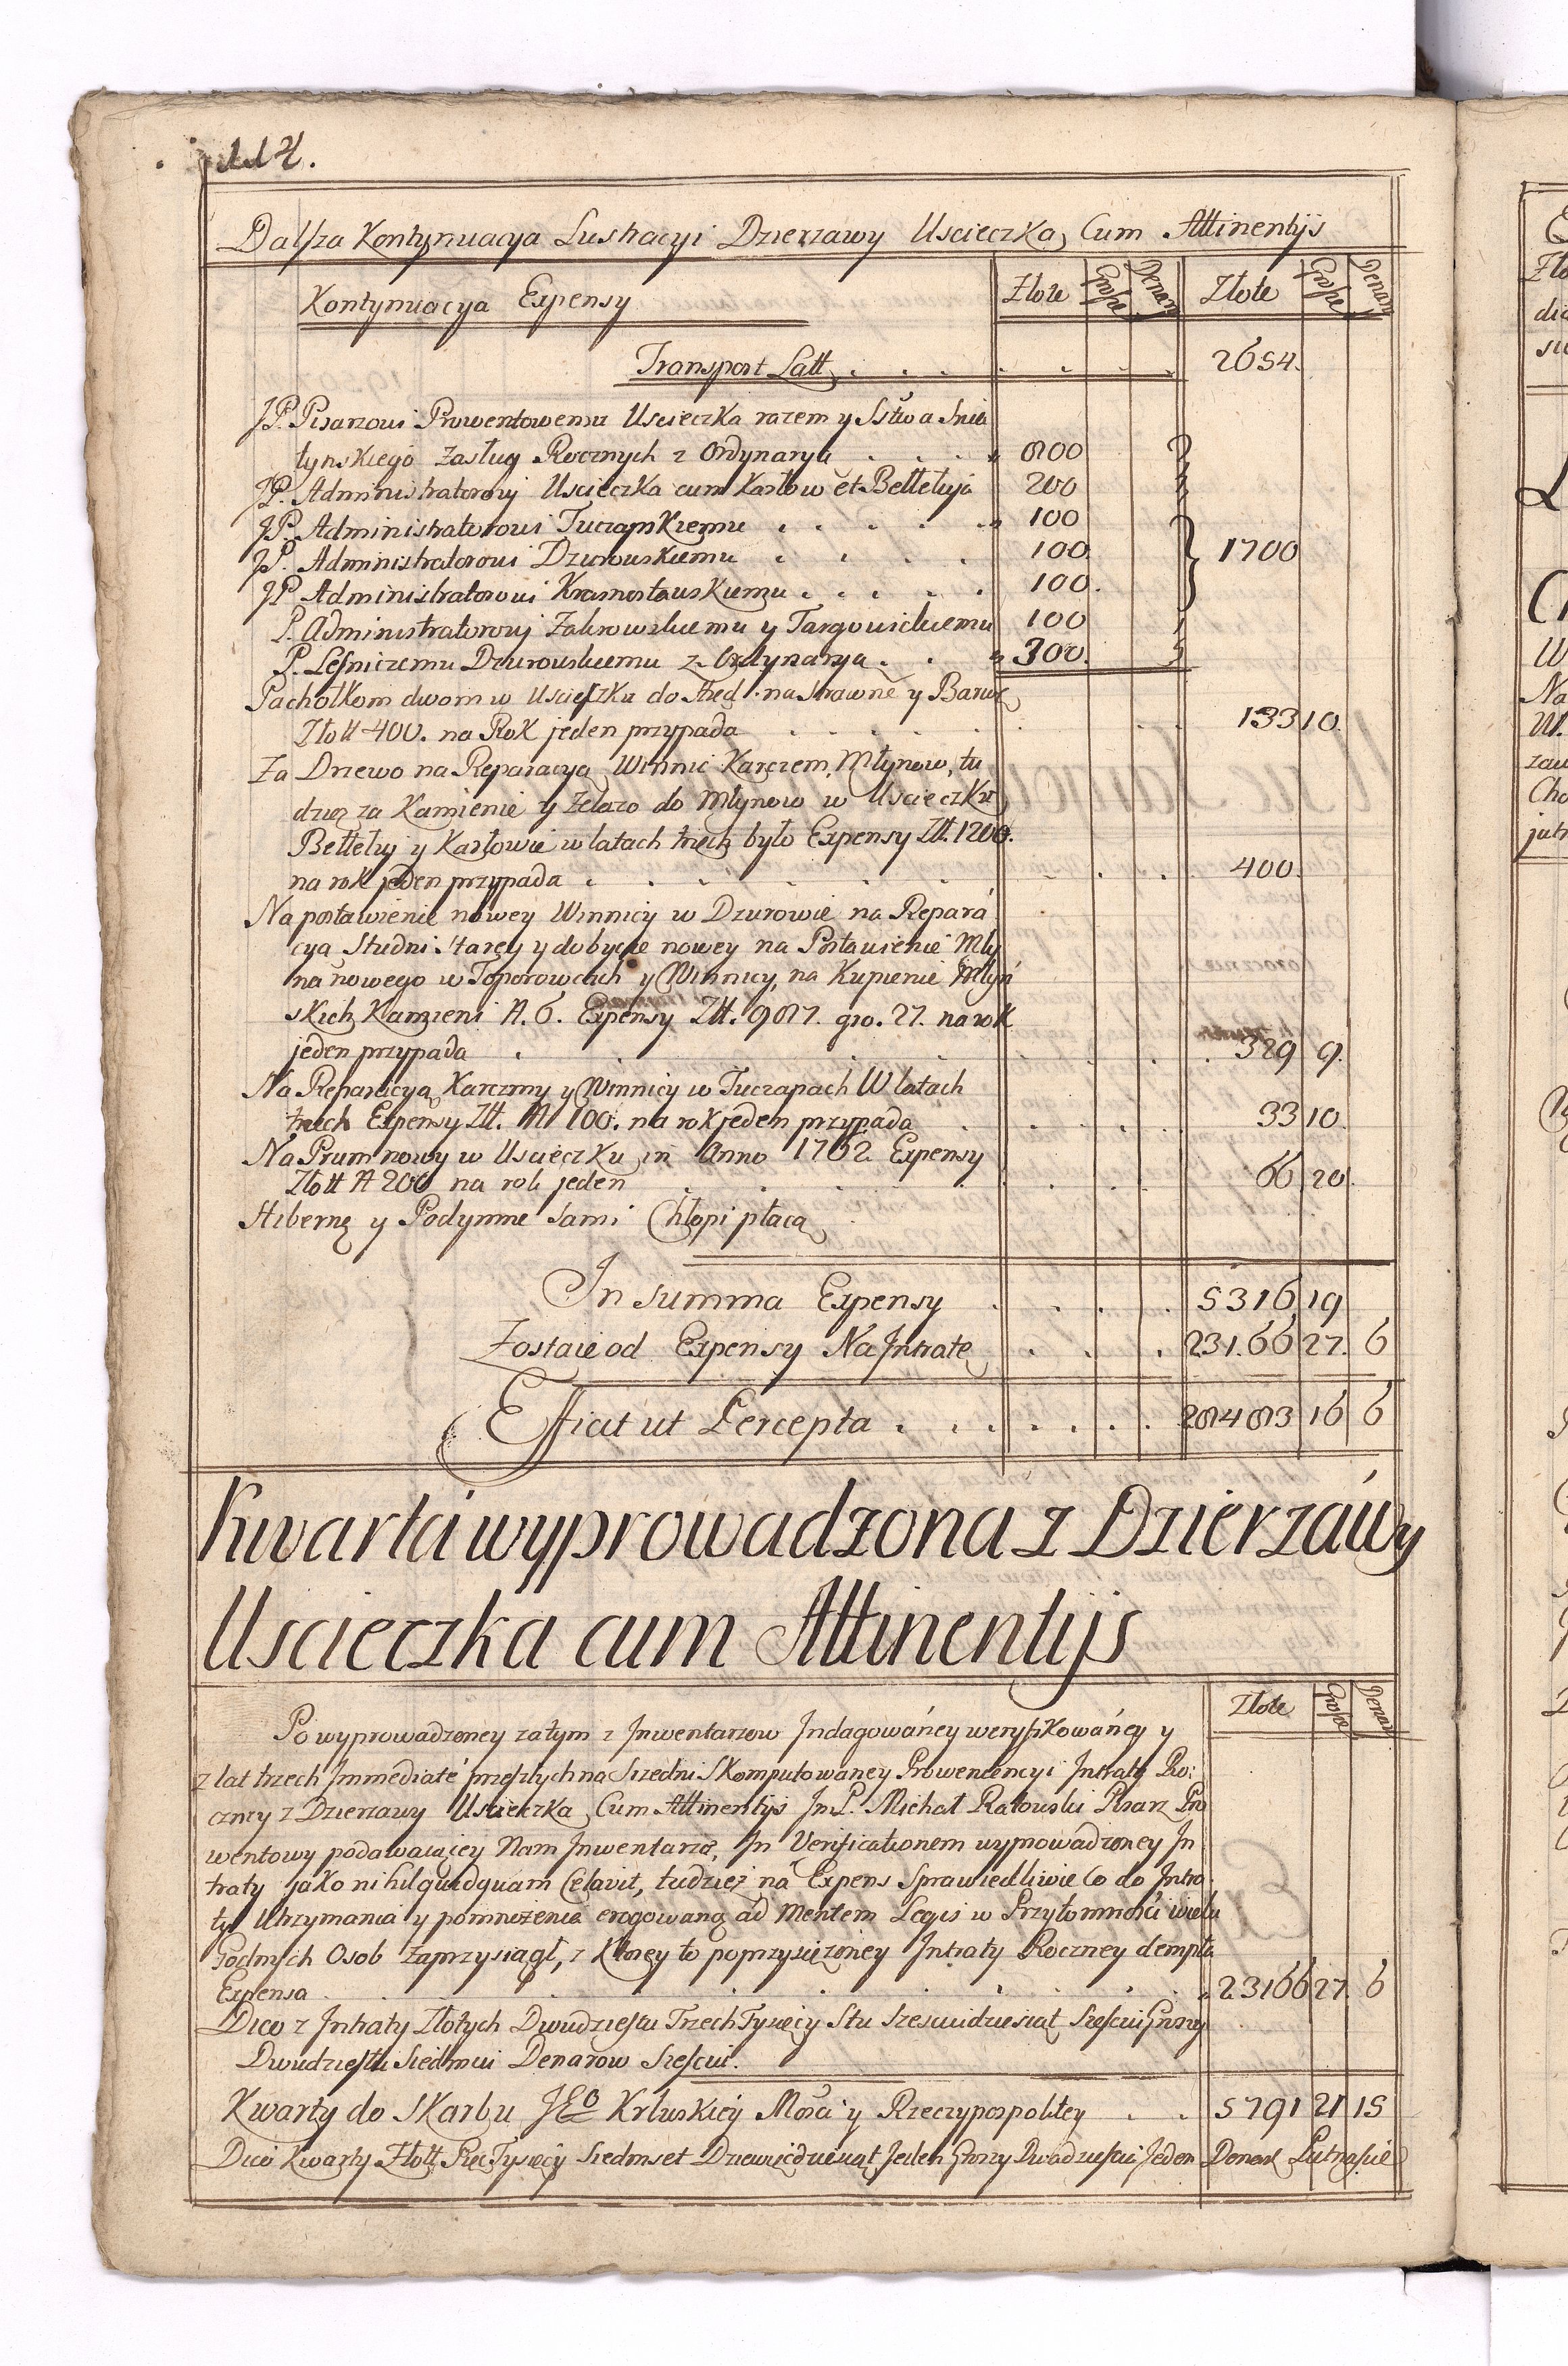 Dalsza Kontynuacya Lustracyi Dzierzawy Uscieczka Cum Attinentijs
Kontynuacya Expensy Złote Grosze Denary Złote Grosze Denary
Transport Latt . . . 2654.
JP. Pisarzowi Prowentowemu Uscieczka razem y Sstwa Snia
tynskiego Zasług Rocznych z Ordynaryą . . . 800
JP. Administratorowj Uscieczka cum Karłow et Bełłełuja 200
JP. Administratorowi Tuczapskiemu . . . 100
JP. Administratorowi Dzurowskiemu . . . 100 1700
JP Administratorowi Krasnostawskiemu . . . 100.
P. Administratorowj Zabrowskiemu y Targowickiemu 100
P. Lesniczemu Dzurowskiemu z Ordynaryą . . 300.
Pachołkom dwom w Usciesżku do Kred. na strawne y Barwę
Złott 400. na Rok jeden przypada . . . 133 10.
Za Drzewo na Reparacyą Winnic Karczem, Młynow, tu
dziesz za Kamienie y Zelazo do Młynow w Uscieczku
Bełłełuy y Karłowie w latach trzech było Expensy Złł. 1200.
na rok jeden przypada . . . 400.
Na postawienie nowey Winnicy w Dzurowie na Repara
cyą Studni Starey y dobycie nowey na Postawienie Mły
na nowego w Toporowcach y Winnicy, na Kupienie Młyń
skich Kamieni N. 6. Expensy Złł. 987. gro. 27. na rok
jeden przypada . . . 329 9.
Na Reparacyą Karczmy y Winnicy w Tuczapach W latach
trzech Expensy Złł. N 100. na rok jeden przypada . . . 33 10.
Na Prum nowy w Uscieczku in Anno 1762 Expensy
Złott N 200 na rok jeden . . . 66 20.
Hibernę y Podymne sami Chłopi płacą
In Summa Expensy . . . 5316 19
Zostaie od Expensy Na Intratę . . . 23166 27. 6
Efficit ut Percepta . . . 28483 16 6
Kwarta wyprowadzona z Dzierzawy
Uscieczka cum Attinentijs
Złote Grosze Denary
Po wyprowadzoney zatym z Inwentarzow Indagowaney weryfikowaney y
z lat trzech Immediate przeszłych na Srzedni Skomputowaney Prowentencyi Intraty Ro:
czney z Dzierzawy Uscieczka Cum Attinentijs Jm P. Michał Ratowski Pisarz Pro
wentowy podawaiącey Nam Inwentarze, In Verificationem wyprowadzoney In
traty jako nihil quidquam Celavit, tudziez na Expens Sprawiedliwie Co do Intra
ty Utrzymania y pomnożenia erogowaną ad Mentem Legis w Przytomności wielu
Godnych Osob zaprzysiągł, z Ktorey to poprzysiężoney Intraty Roczney dempta
Expensa . . . 23166 27. 6
Dico z Intraty Złotych Dwudziestu Trzech Tysięcy Stu Szesciudziesiąt Szesciu Groszy
Dwudziestu Siedmiu Denarow Szesciu.
Kwarty do Skarbu JKo Krlewskiey Mosci y Rzeczypospolitey . . 5791 21 15
Dico Kwarty Złott Pięc Tysięcy Siedmset Dziewięcdziesiąt Jeden Groszy Dwadziescia Jeden Denar Piętnascie